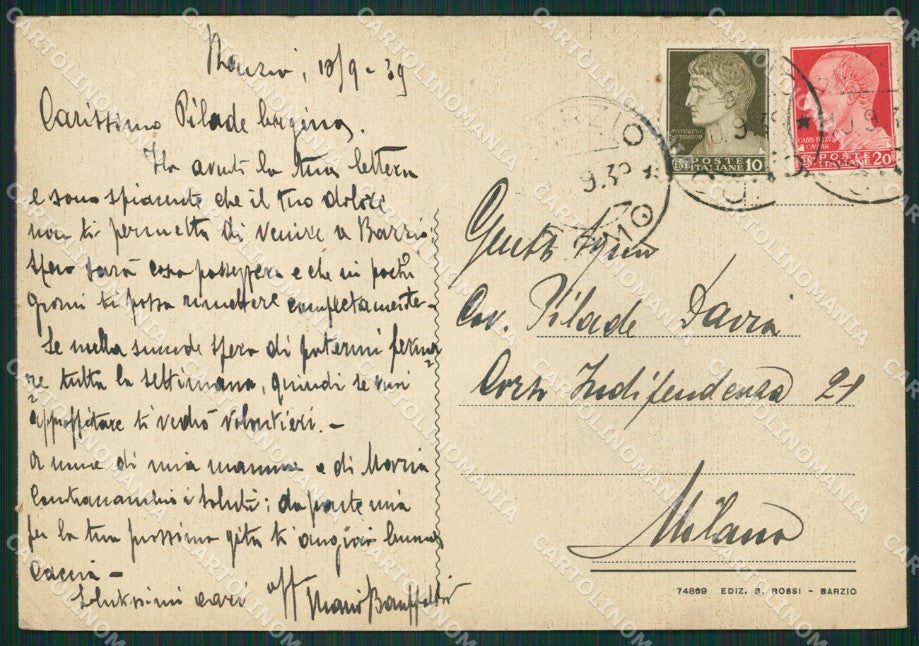 Barzio, 10/9-39
Carissimo Pilade
Ho avuto la tua lettera
e sono spiacente che il tuo dolore
non ti permetta di venire a Barzio;
spero sarà cosa passeggera e che in pochi
giorni ti possa rimettere completamente -
Se nulla succede spero di potermi ferma
re tutta la settimana, quindi se vuoi
approfittare ti vedrò volentieri. -
A nome di mia mamma e di Maria
Contraccambio i saluti; da parte mia
per la tua prossima gita ti auguro buona
caccia -
Salutissimi cari aff Mario
POSTE ITALIANE 10
POSTE ITALIANE 20
BARZIO
Cav. Pilade Davia
Corso Indipendenza 21
Milano
74869 EDIZ. S. ROSSI - BARZIO
CARTOLINOMANIA